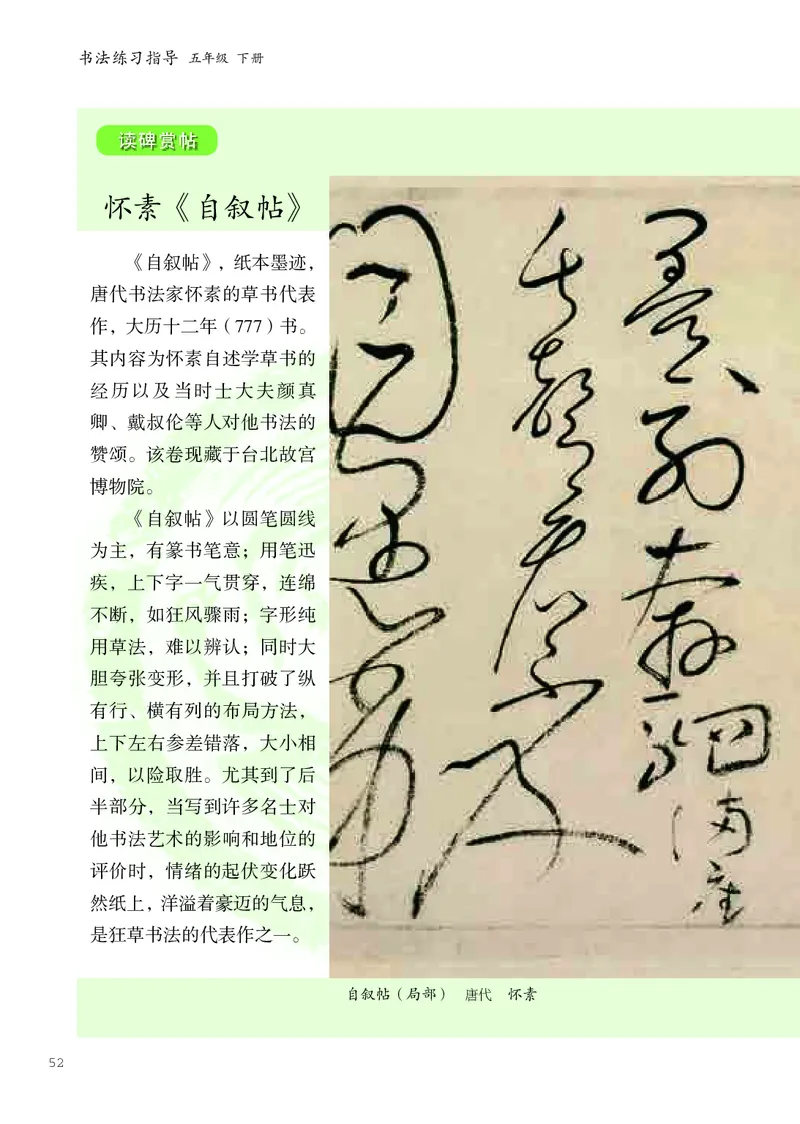 书法练习指导 五年级 下册
读碑赏帖
怀素《自叙帖》
《自叙帖》，纸本墨迹，
唐代书法家怀素的草书代表
作，大历十二年（777）书。
其内容为怀素自述学草书的
经历以及当时士大夫颜真
卿、戴叔伦等人对他书法的
赞颂。该卷现藏于台北故宫
博物院。
《自叙帖》以圆笔圆线
为主，有篆书笔意；用笔迅
疾，上下字一气贯穿，连绵
不断，如狂风骤雨；字形纯
用草法，难以辨认；同时大
胆夸张变形，并且打破了纵
有行、横有列的布局方法，
上下左右参差错落，大小相
间，以险取胜。尤其到了后
半部分，当写到许多名士对
他书法艺术的影响和地位的
评价时，情绪的起伏变化跃
然纸上，洋溢着豪迈的气息，
是狂草书法的代表作之一。
墨列奔驷满座
失声看不及
目愚劣
自叙帖（局部） 唐代 怀素
52